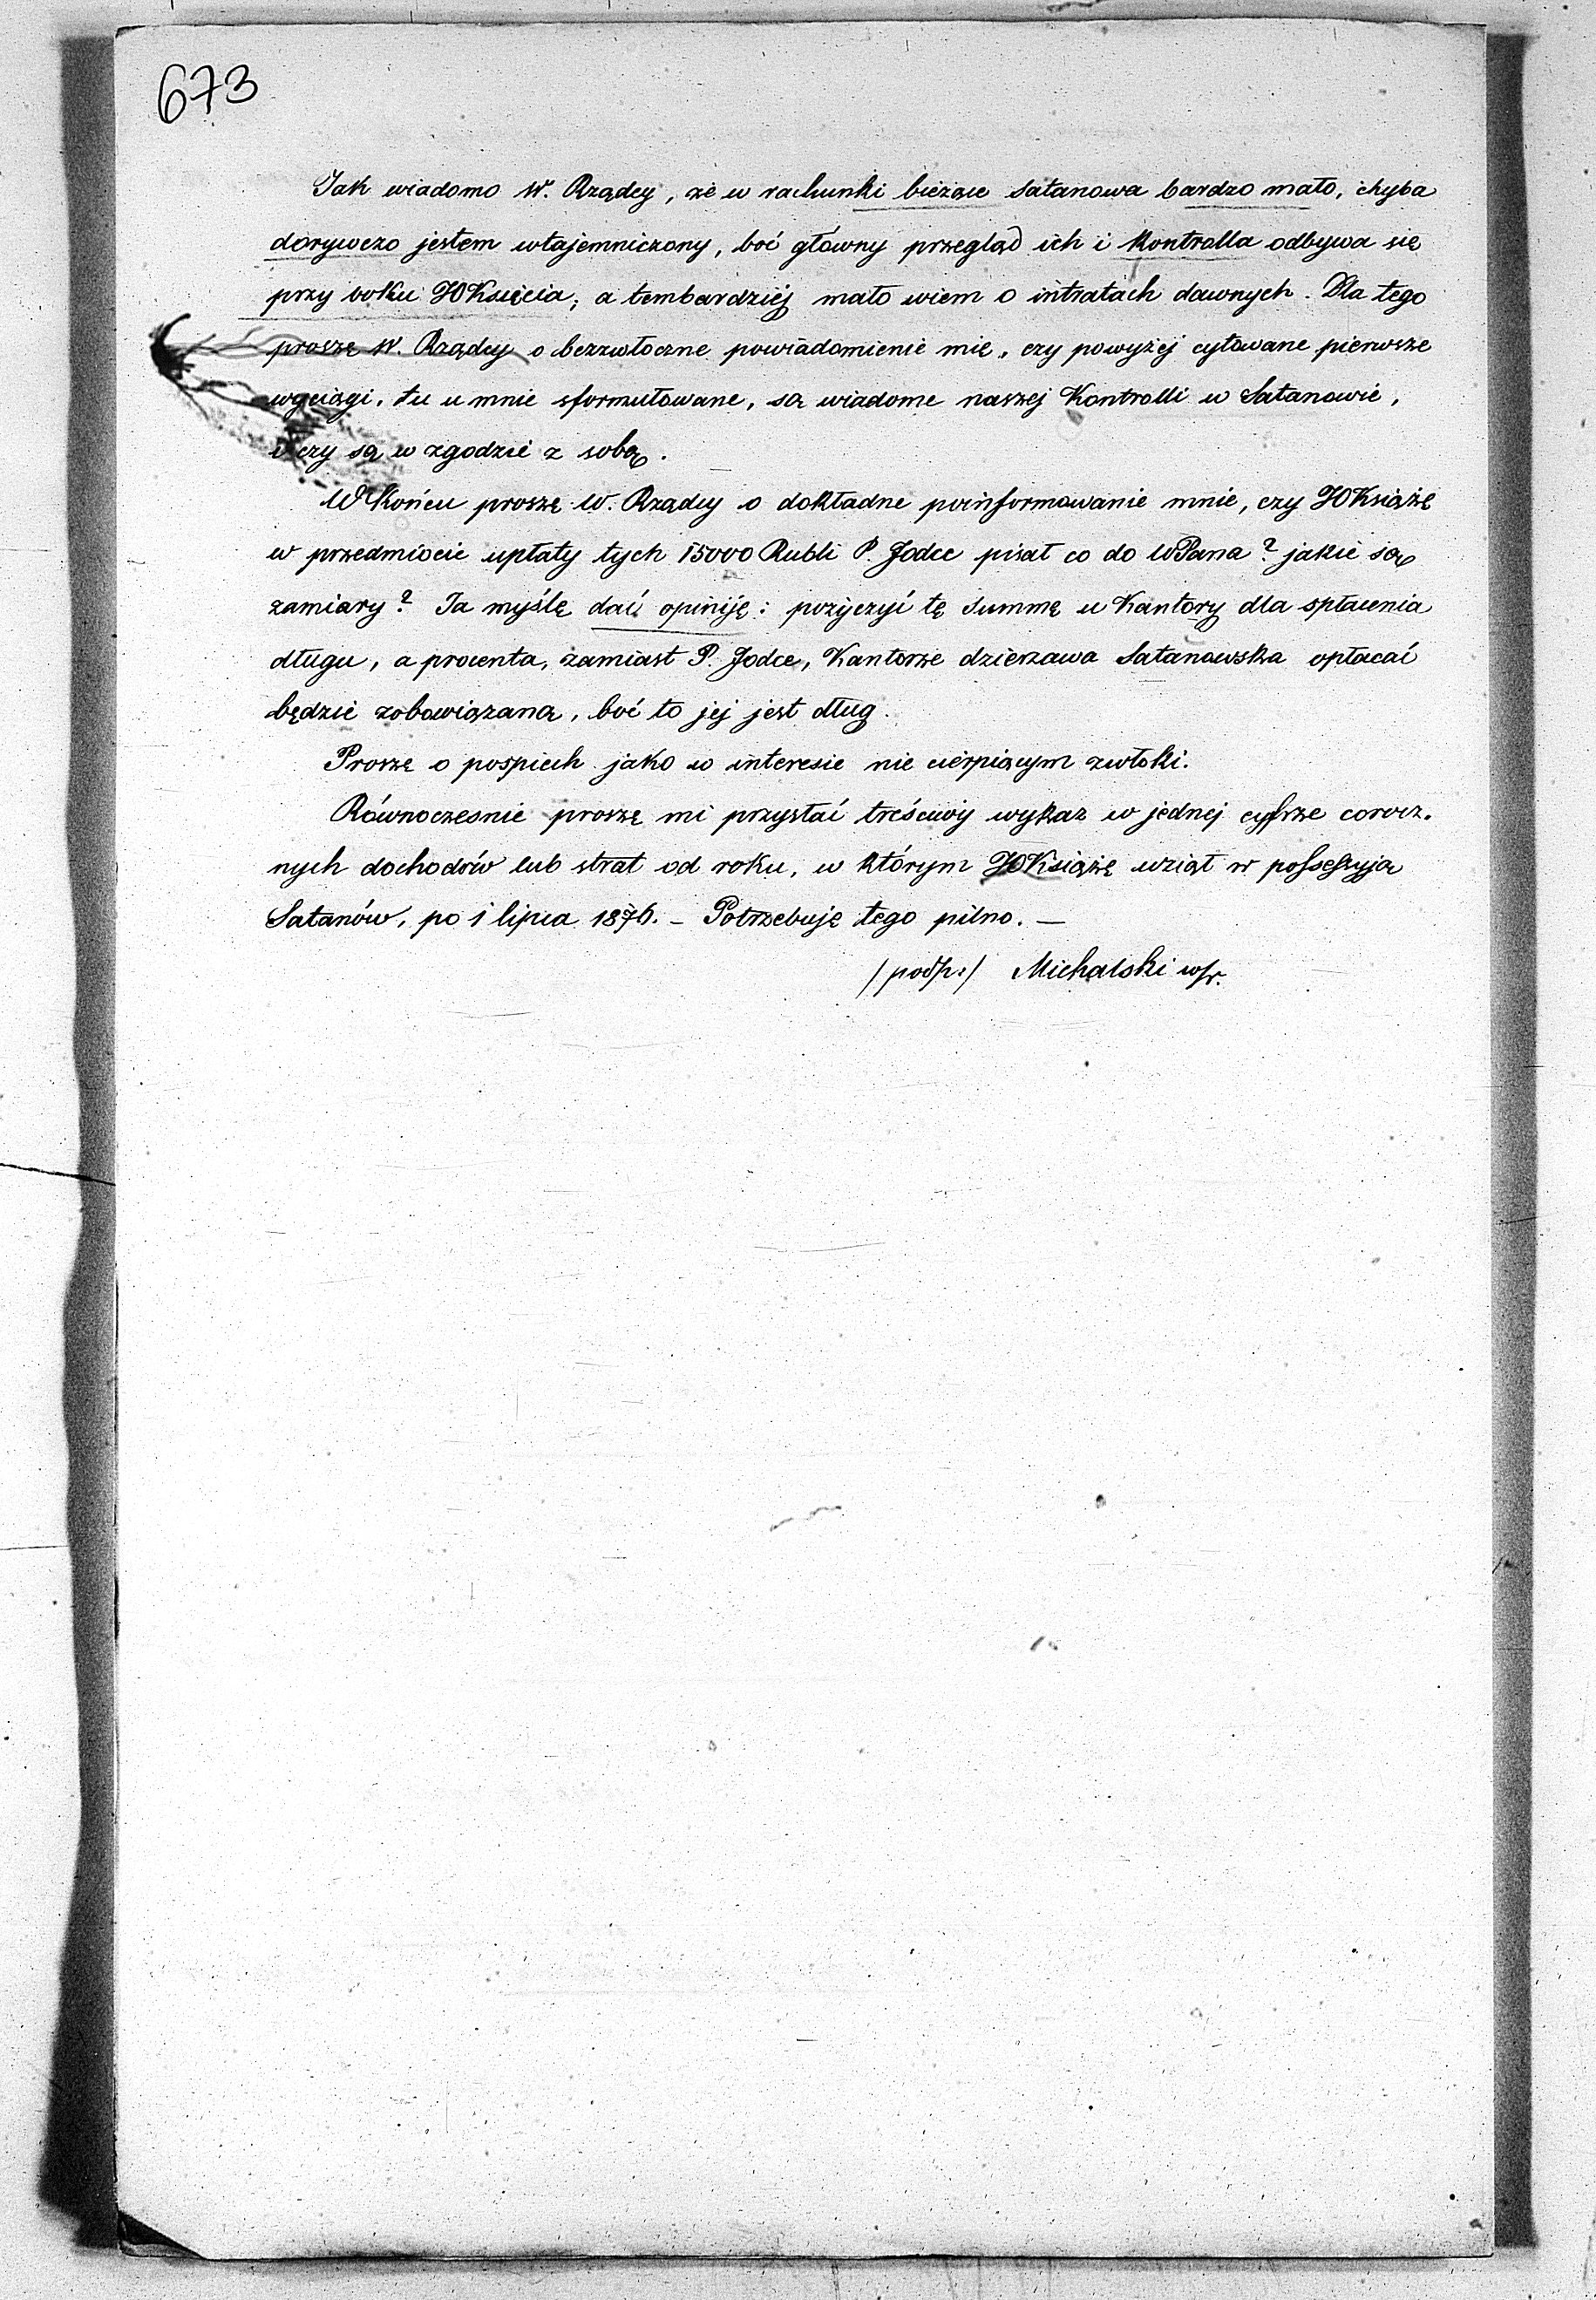 673
Jak wiadomo W. Rządcy, że w rachunki bieżące Satanowa bardzo mało, chyba
dorywczo jestem wtajemniczony, boć główny przegląd ich i Kontrolla odbywa się
przy boku JOKsięcia, a tembardziej mało wiem o intratach dawnych. Dla tego
proszę W. Rządcy o bezzwłoczne powiadomienie mię, czy powyżej cytowane pierwsze
wyciągi, tu u mnie sformułowane, są wiadome naszej Kontrolli w Satanowie,
i czy są w zgodzie z sobą.
W Końcu proszę W. Rządcy o dokładne poinformowanie mnie, czy JOKsiążę
w przedmiocie upłaty tych 15000 Rubli P. Jodce pisał co do WPana? jakie są
zamiary? Ja myślę dać opiniję: pożyczyć tę Summę u Kantory dla spłacenia
długu, a procenta, zamiast P. Jodce, Kantorze dzierzawa Satanowska opłacać
będzie zobowiązaną, boć to jej jest dług.
Proszę o pospiech jako w interesie nie cierpiącym zwłoki.
Równoczesnie proszę mi przysłać treściwy wykaz w jednej cyfrze corocz-
nych dochodów lub strat od roku, w którym JOKsiążę wziął w possessyją
Satanów, po 1 lipca 1876. – Potrzebuję tego pilno. —
/podp:/ Michalski wr.